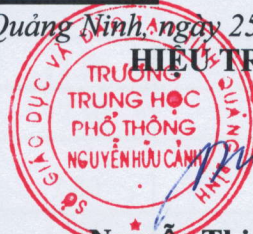 Quảng Ninh, ngày 25
HIỆU TR
SỞ GIÁO DỤC VÀ ĐÀO TẠO TỈNH QUẢNG BÌNH
TRƯỜNG
TRUNG HỌC
PHỔ THÔNG
NGUYỄN HỮU CẢNH